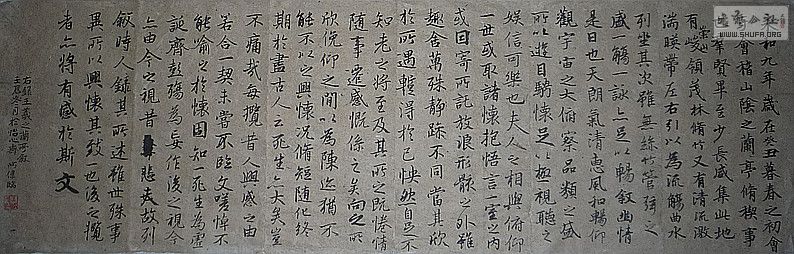 WWW.SHUFA.ORG
和九年歲在癸丑暮春之初會
會稽山陰之蘭亭脩稧事
群賢畢至少長咸集此地
有崇山峻領茂林脩竹又有清流激
湍暎帶左右引以為流觴曲水
列坐其次雖無絲竹管弦之
盛一觴一詠亦足以暢敘幽情
是日也天朗氣清惠風和暢仰
觀宇宙之大俯察品類之盛
所以遊目騁懷足以極視聽之
娛信可樂也夫人之相與俯仰
一世或取諸懷抱悟言一室之內
或因寄所託放浪形骸之外雖
趣舍萬殊靜躁不同當其欣
於所遇暫得於己快然自足不
知老之將至及其所之既惓情
隨事遷感慨係之矣向之所
欣俛仰之間以為陳迹猶不
能不以之興懷況脩短隨化終
期於盡古人云死生亦大矣豈
不痛哉每攬昔人興感之由
若合一契未嘗不臨文嗟悼不
能喻之於懷固知一死生為虛
誕齊彭殤為妄作後之視今
亦由今之視昔悲夫故列
敘時人錄其所述雖世殊事
異所以興懷其致一也後之攬
者亦將有感於斯文
右錄王羲之蘭亭敘